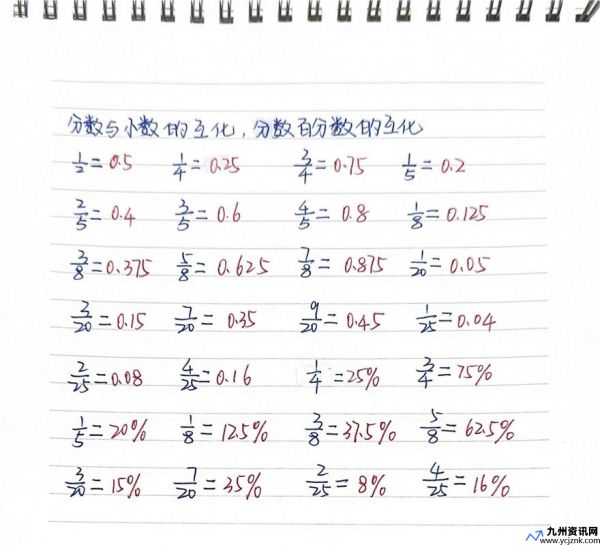 分数与小数的互化，分数百分数的互化
1/2=0.5 1/4=0.25 3/4=0.75 1/5=0.2
2/5=0.4 3/5=0.6 4/5=0.8 1/8=0.125
3/8=0.375 5/8=0.625 7/8=0.875 1/20=0.05
3/20=0.15 7/20=0.35 9/20=0.45 1/25=0.04
2/25=0.08 4/25=0.16 1/4=25% 3/4=75%
1/5=20% 1/8=12.5% 3/8=37.5% 5/8=62.5%
3/20=15% 7/20=35% 2/25=8% 4/25=16%
九州资讯网
www.ycjznk.com